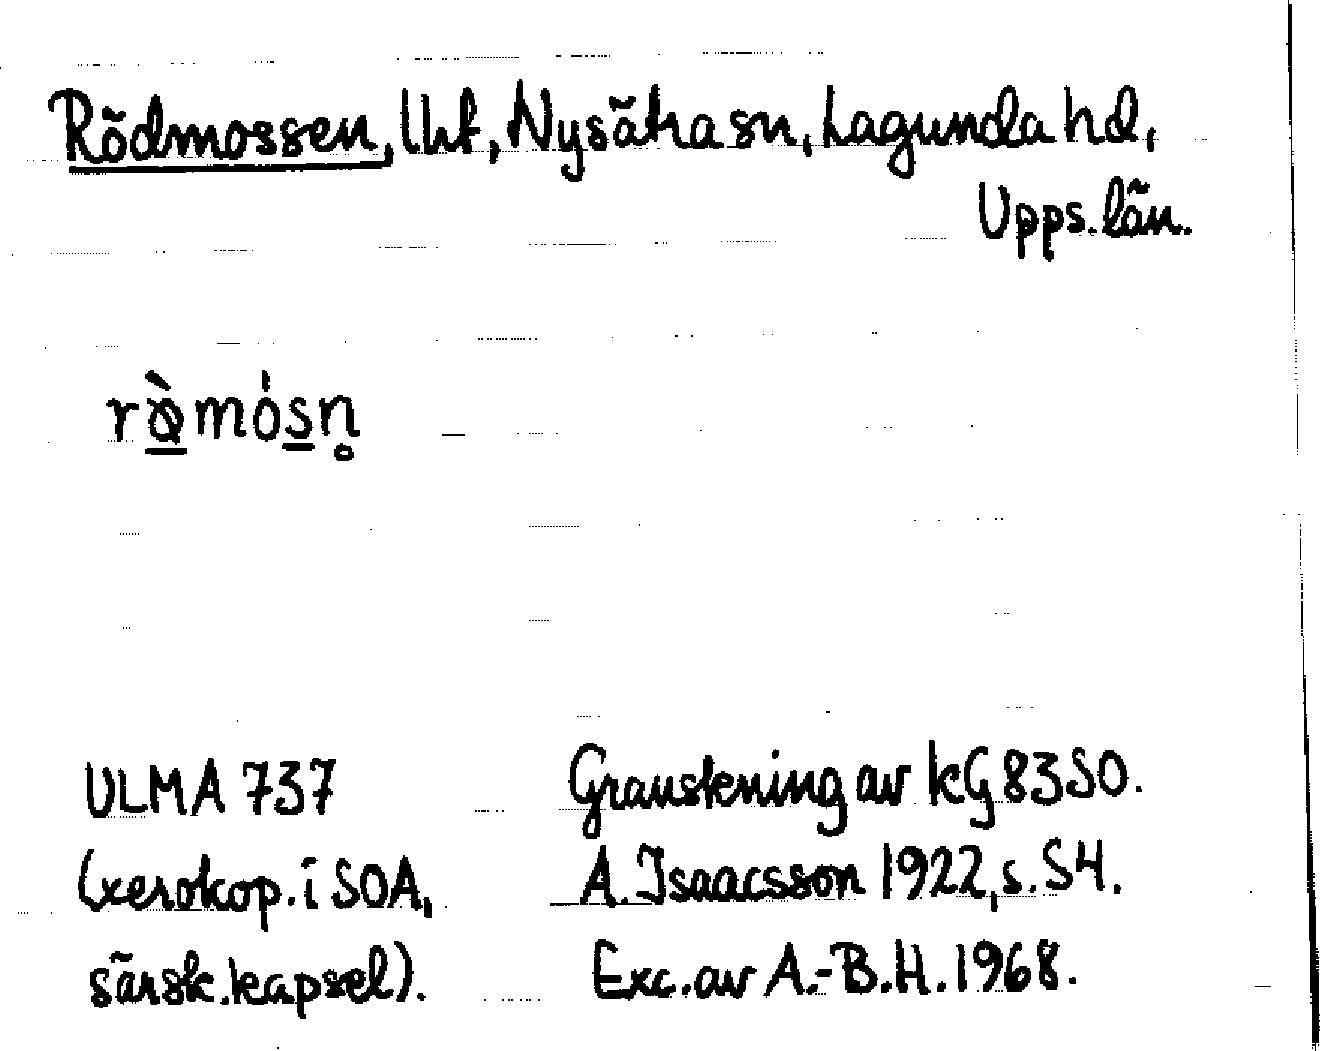 Rödmossen, lht, Nysätra sn, Lagunda hd,
Upps. län.
rø̱̀mósṉ̥
ULMA 737
(xerokop. i SOA,
särsk. kapsel).
Granskning av kG 8350.
A. Isaacsson 1922, s. 54.
Exc. av A.-B.H. 1968.